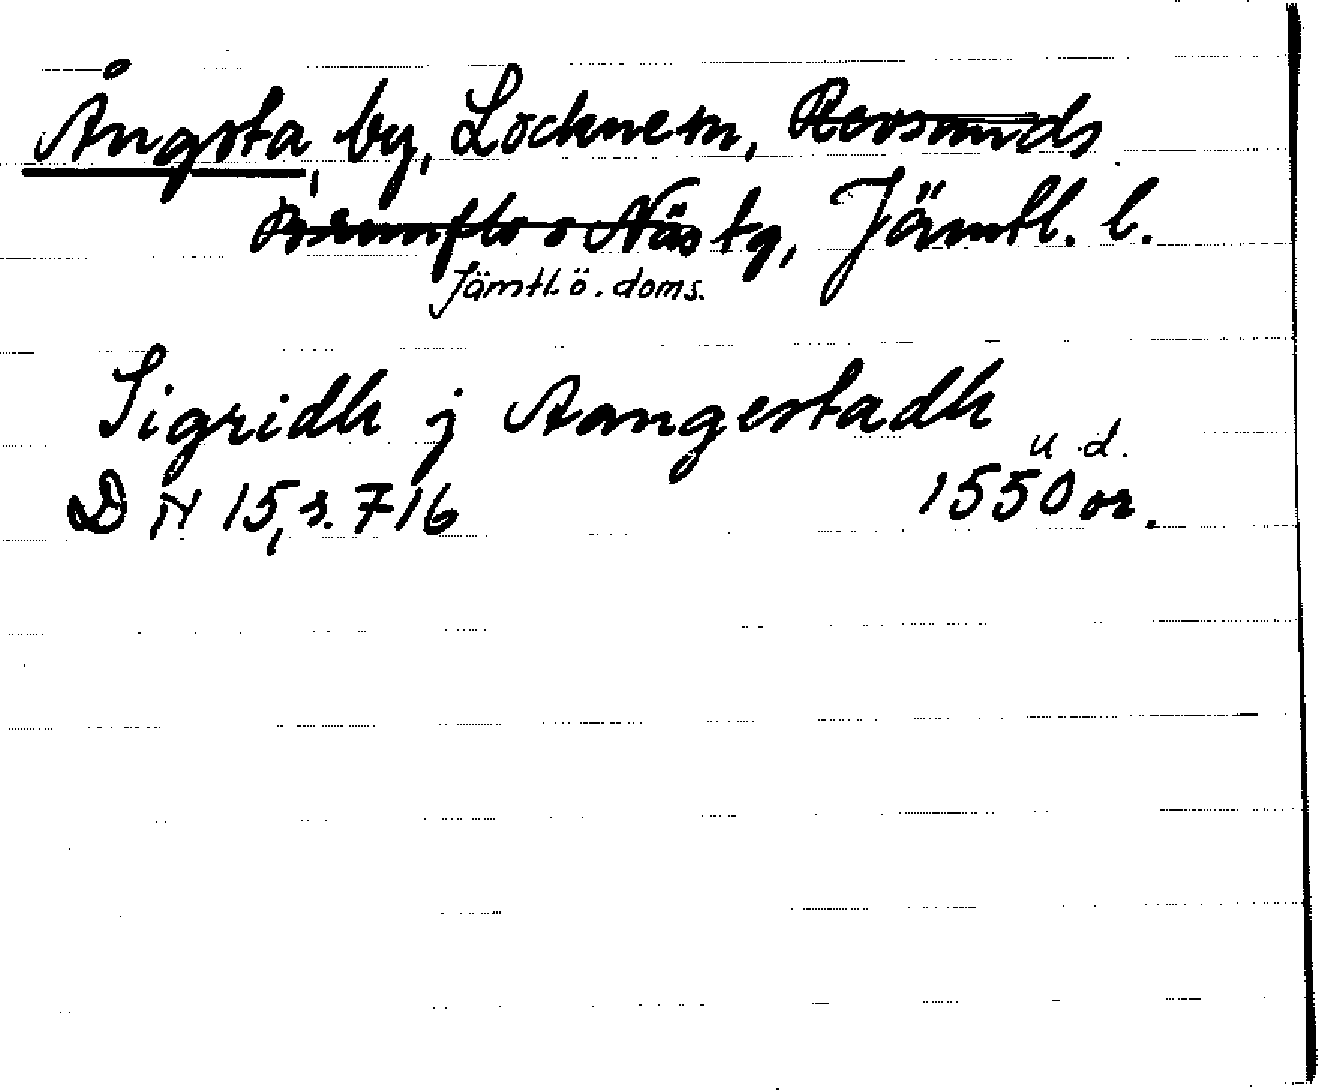 Ångsta, by, Lockne sn, Revsunds
Brunflo o Näs tg, Jämtl. l.
Jämtl. ö. doms.
Sigridh j Aangestadh
u.d.
DN 15, s. 716 1550 or.